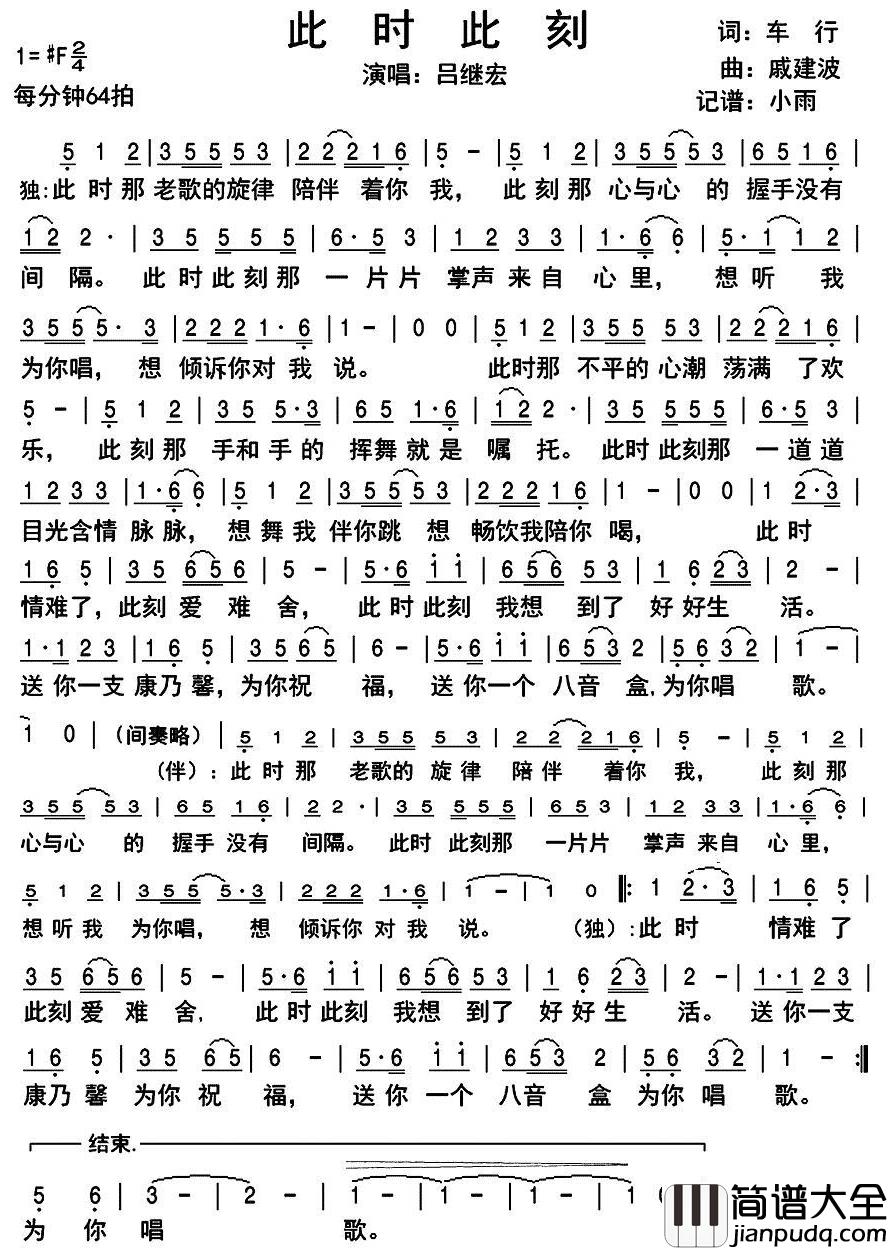 此 时 此 刻
词：车 行
1=#F 2/4
演唱：吕继宏
曲：戚建波
每分钟64拍
记谱：小雨
5 1 2 | 3 5 5 5 5 3 | 2 2 2 1 6 | 5 - | 5 1 2 | 3 5 5 5 5 3 | 6 5 1 6 |
独：此 时 那 老歌的旋律 陪伴 着你 我， 此 刻 那 心与心 的 握手没有
1 2 2 · | 3 5 5 5 5 5 | 6 · 5 3 | 1 2 3 3 | 1 · 6 6 | 5 · 1 1 2 |
间 隔。 此 时 此 刻 那 一 片 片 掌声 来自 心 里， 想 听 我
3 5 5 5 · 3 | 2 2 2 1 · 6 | 1 - | 0 0 | 5 1 2 | 3 5 5 5 3 | 2 2 2 1 6 |
为你唱， 想 倾诉你对 我 说。 此时那 不平的 心潮 荡满 了欢
5 - | 5 1 2 | 3 5 5 · 3 | 6 5 1 · 6 | 1 2 2 · | 3 5 5 5 5 | 6 · 5 3 |
乐， 此 刻 那 手和 手 的 挥舞 就 是 嘱 托。 此时 此刻那 一 道道
1 2 3 3 | 1 · 6 6 | 5 1 2 | 3 5 5 5 5 3 | 2 2 2 1 6 | 1 - | 0 0 | 1 2 · 3 |
目光含情 脉 脉， 想 舞 我 伴你跳 想 畅饮我陪你 喝， 此 时
1 6 5 | 3 5 6 5 6 | 5 - | 5 · 6 1 1 | 6 5 6 5 3 | 1 6 2 3 | 2 - |
情难了，此刻 爱 难 舍， 此 时 此 刻 我想 到 了 好 好生 活。
1 · 1 2 3 | 1 6 5 | 3 5 6 5 | 6 - | 5 · 6 1 1 | 6 5 3 2 | 5 6 3 2 | 1 - |
送 你一支 康乃 馨，为你祝 福， 送 你一个 八音 盒，为你唱 歌。
1 0 | （间奏略） 5 1 2 | 3 5 5 5 3 | 2 2 2 1 6 | 5 - | 5 1 2 |
（伴）：此 时 那 老歌的 旋律 陪伴 着你 我， 此 刻 那
3 5 5 5 5 3 | 6 5 1 6 | 2 2 · | 3 5 5 5 5 | 6 · 5 3 | 1 2 3 3 | 1 · 6 6 |
心与心 的 握手 没有 间隔。 此时 此刻那 一片片 掌声 来自 心 里，
5 1 2 | 3 5 5 5 · 3 | 2 2 2 1 · 6 | 1 - | 1 0 ‖: 1 2 · 3 | 1 6 5 |
想 听 我 为你唱， 想 倾诉你 对 我 说。 （独）：此 时 情难 了
3 5 6 5 6 | 5 - | 5 · 6 1 1 | 6 5 6 5 3 | 1 6 2 3 | 2 - | 1 · 1 2 3 |
此刻 爱 难 舍， 此 时 此刻 我想 到了 好 好 生 活。 送 你一支
1 6 5 | 3 5 6 5 | 6 - | 5 · 6 1 1 | 6 5 3 2 | 5 6 3 2 | 1 - :‖
康乃 馨 为你 祝 福， 送 你 一个 八音 盒 为你 唱 歌。
结束.
5 6 | 3 - | 2 - | 1 - | 1 - | 1
为 你 唱 歌。
简谱大全
jianpudq.com